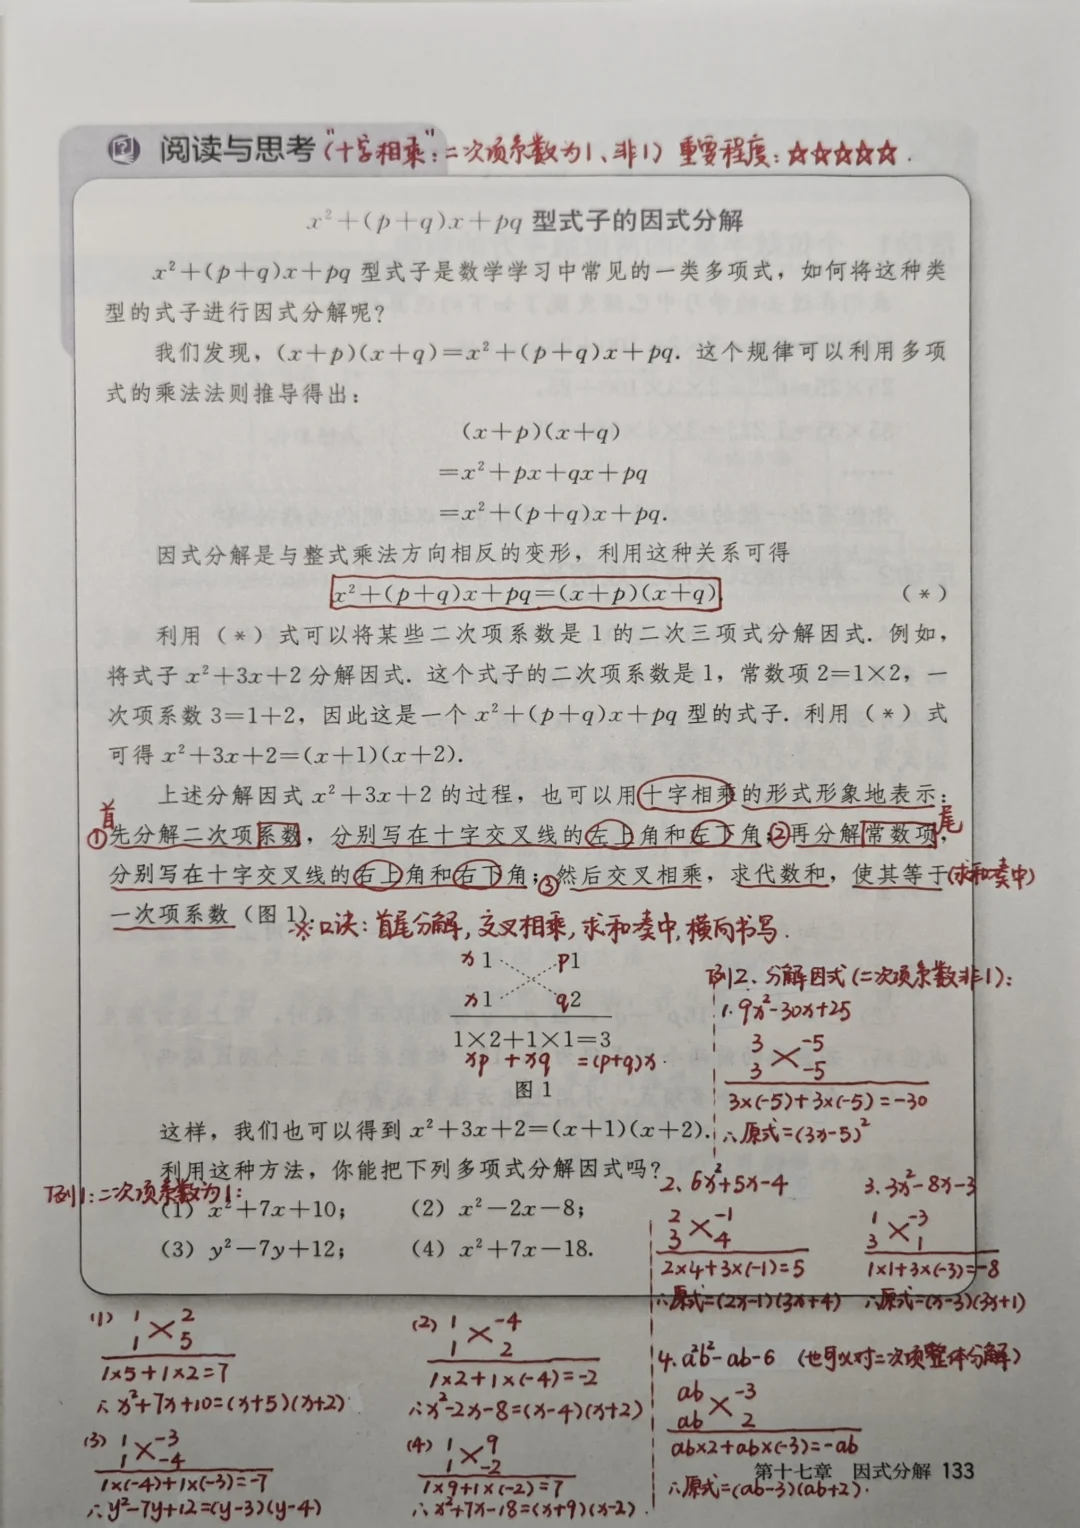 阅读与思考("十字相乘":二次项系数为1、非1) 重要程度:☆☆☆☆☆.
x²+(p+q)x+pq 型式子的因式分解
x²+(p+q)x+pq 型式子是数学学习中常见的一类多项式,如何将这种类
型的式子进行因式分解呢?
我们发现,(x+p)(x+q)=x²+(p+q)x+pq. 这个规律可以利用多项
式的乘法法则推导得出:
(x+p)(x+q)
=x²+px+qx+pq
=x²+(p+q)x+pq.
因式分解是与整式乘法方向相反的变形,利用这种关系可得
x²+(p+q)x+pq=(x+p)(x+q). (*)
利用(*)式可以将某些二次项系数是1的二次三项式分解因式. 例如,
将式子 x²+3x+2 分解因式. 这个式子的二次项系数是1,常数项 2=1×2,一
次项系数 3=1+2,因此这是一个 x²+(p+q)x+pq 型的式子. 利用(*)式
可得 x²+3x+2=(x+1)(x+2).
上述分解因式 x²+3x+2 的过程,也可以用十字相乘的形式形象地表示:
首 尾
①先分解二次项系数,分别写在十字交叉线的左上角和左下角;②再分解常数项,
分别写在十字交叉线的右上角和右下角;③然后交叉相乘,求代数和,使其等于(求和凑中)
一次项系数(图1). ※口诀:首尾分解,交叉相乘,求和凑中,横向书写.
x 1 p 1
x 1 q 2
1×2+1×1=3
xp +xq =(p+q)x.
图1
这样,我们也可以得到 x²+3x+2=(x+1)(x+2).
利用这种方法,你能把下列多项式分解因式吗?
例1:二次项系数为1:
(1) x²+7x+10; (2) x²-2x-8;
(3) y²-7y+12; (4) x²+7x-18.
(1) 1 2
1 5
1×5+1×2=7
∴x²+7x+10=(x+5)(x+2)
(2) 1 -4
1 2
1×2+1×(-4)=-2
∴x²-2x-8=(x-4)(x+2)
(3) 1 -3
1 -4
1×(-4)+1×(-3)=-7
∴y²-7y+12=(y-3)(y-4)
(4) 1 9
1 -2
1×9+1×(-2)=7
∴x²+7x-18=(x+9)(x-2).
例2、分解因式(二次项系数非1):
1. 9x²-30x+25
3 -5
3 -5
3×(-5)+3×(-5)=-30
∴原式=(3x-5)²
2、6x²+5x-4
2 -1
3 4
2×4+3×(-1)=5
∴原式=(2x-1)(3x+4)
3. 3x²-8x-3
1 -3
3 1
1×1+3×(-3)=-8
∴原式=(x-3)(3x+1)
4. a²b²-ab-6 (也可以对二次项整体分解)
ab -3
ab 2
ab×2+ab×(-3)=-ab
∴原式=(ab-3)(ab+2).
第十七章 因式分解 133